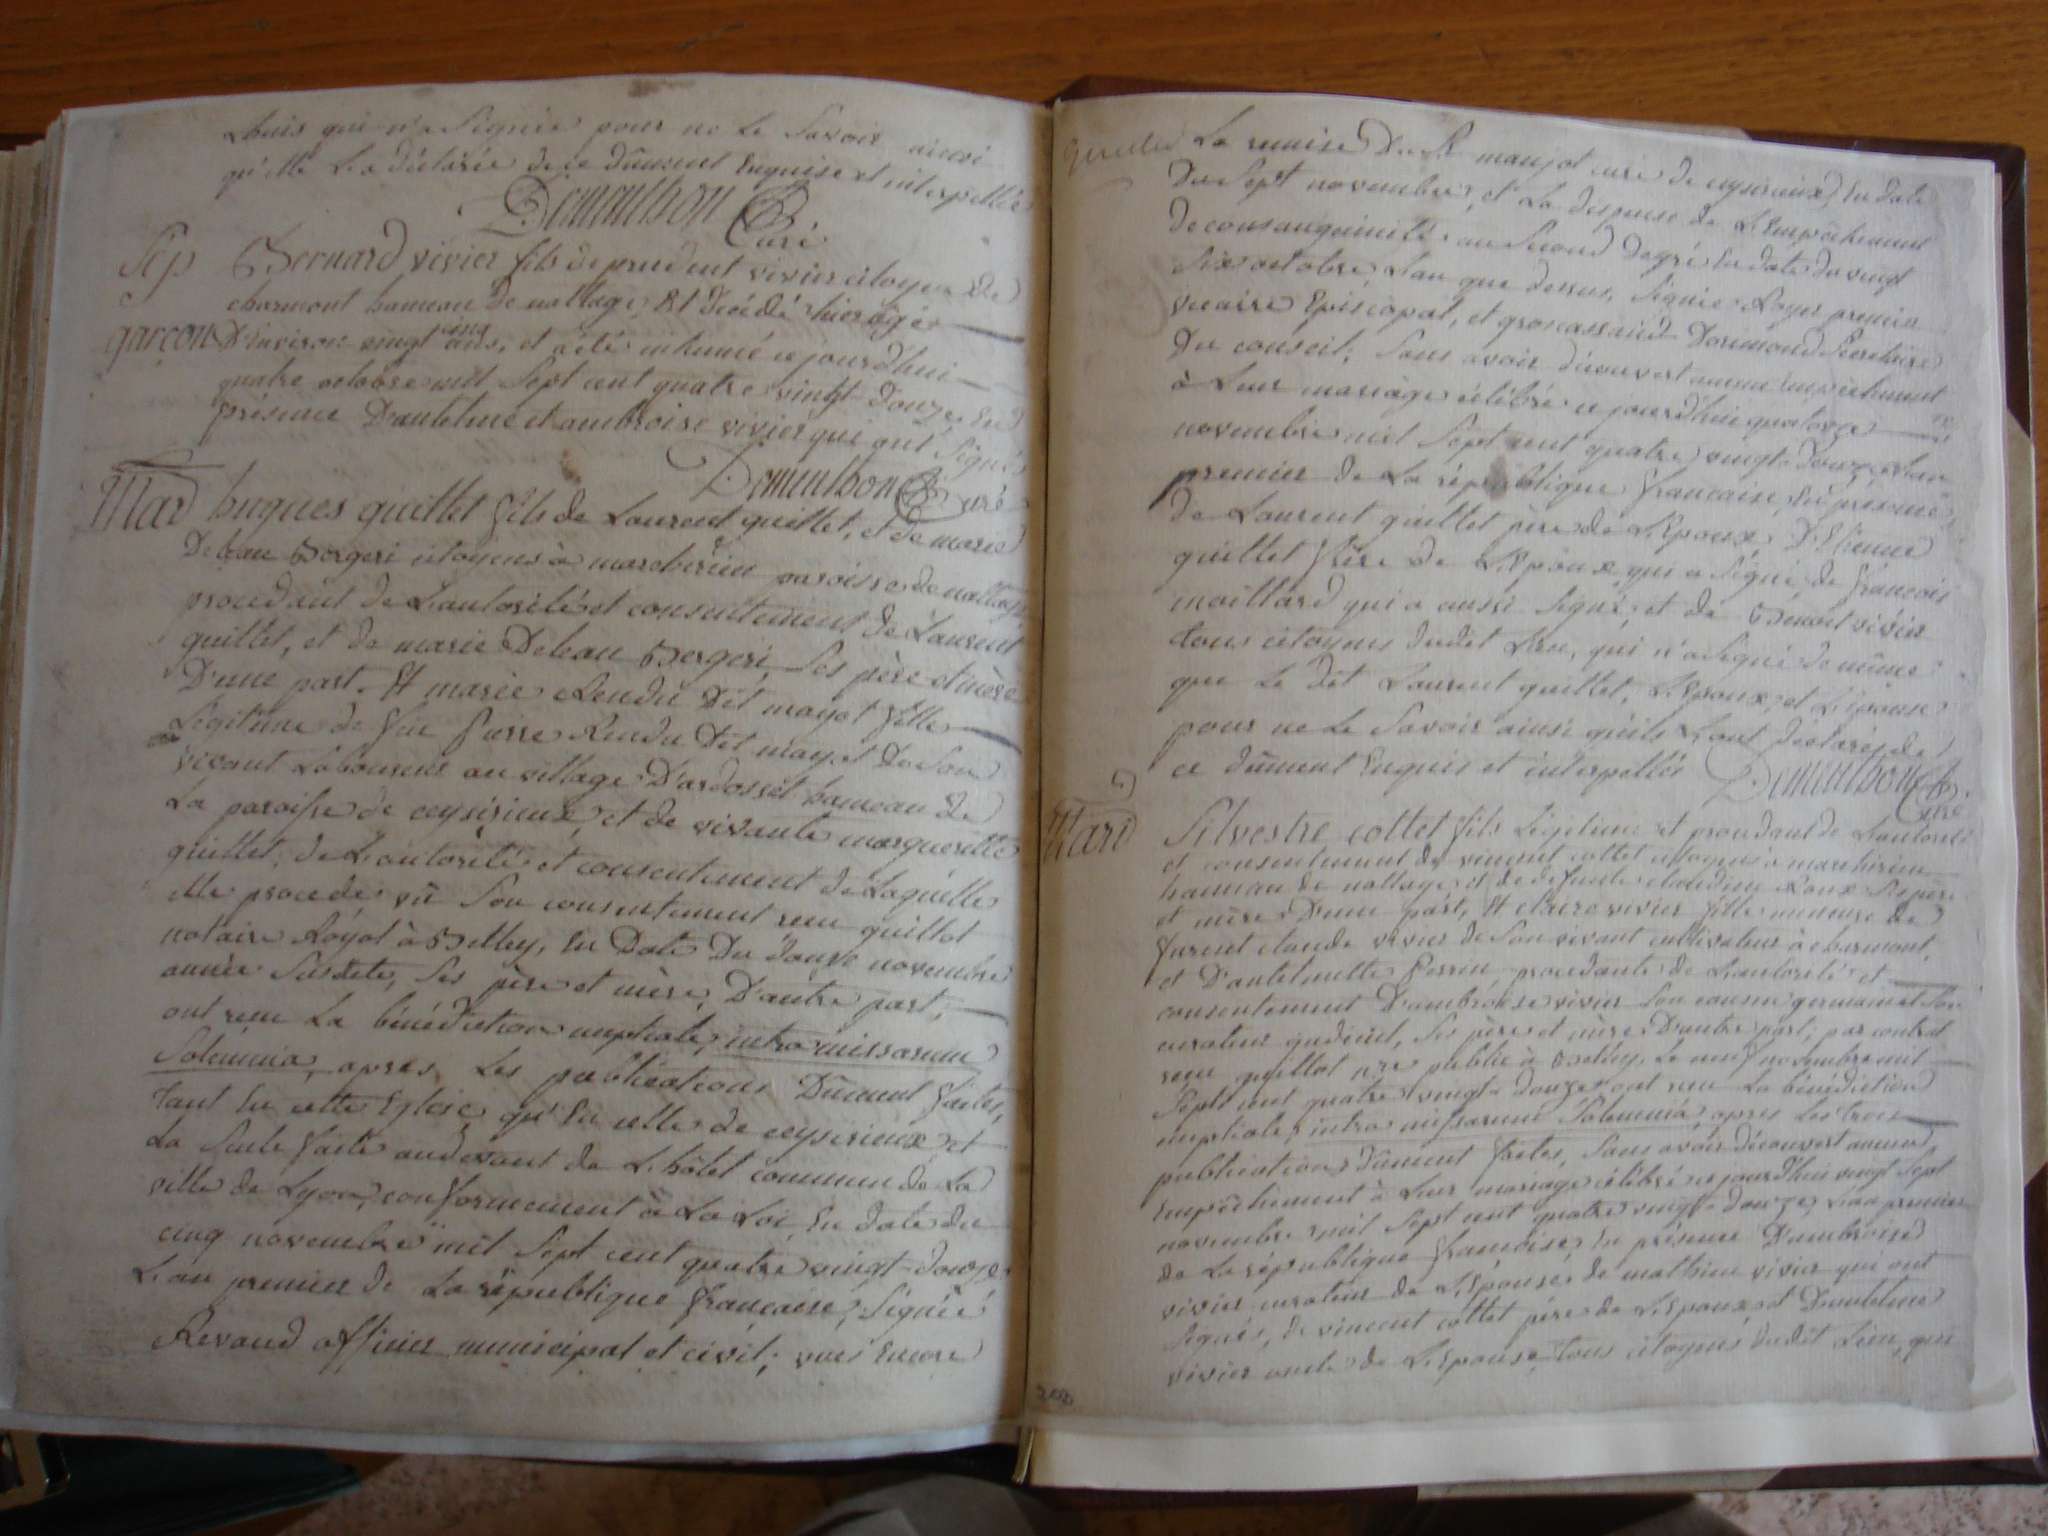 Lhuis qui n'a Signée pour ne le Savoir ainsi
qu'elle L'a déclarée de ce dûment Enquise et interpellée
Dementhon Curé
Sep Bernard vivier fils de prudent vivier citoyen de
charmont hameau de nattage, Est décédé hier âgé
garçon D'environ vingt cinq ans, et a été inhumé ce jourd'hui
quatre octobre mil Sept cent quatre vingt Douze, En
présence D'antelme et ambroise vivier qui ont Signés
Dementhon Curé
Mar hugues guillet fils de Laurent guillet, et de marie
Debeau Bergeri citoyens à marchirieu paroisse de nattage
procedant de L'autorité et consentement de Laurent
guillet, et de marie Debeau Bergeri Ses père et mère
D'une part. Et marie Rendu Dit mayot fille
Légitime de feu Pierre Rendu Dit mayot De Son
vivant Laboureur au village D'ardosset hameau de
La paroisse de ceyserieux, et de vivante margueritte
guillet, de L'autorité et consentement de Laquelle
elle procede vû Son consentement reçu guillot
notaire Royal à Belley, En Date Du Douze novembre
année Susdite, Ses père et mère, D'autre part,
ont reçu La bénédiction nuptiale, intra missarum
Solemnia, apres Les publications Dûment faites,
tant En cette Eglise qu'En celle de ceyserieux, et
La Seule faite audevant de L'hôtel commun de La
ville de Lyon, conformement à La Loi, En date du
cinq novembre mil Sept cent quatre vingt-Douze
L'an premier de La république française, Signée
Revaud officier municipal et civil; vues Encore
La remise Du Sr maujot curé de ceyserieux, En date
Du Sept novembre, et La dispense de L'Empêchement
De consanguinité au Second degré En date du vingt
Six octobre, L'an que dessus, Signée Royer premier
vicaire Episcopal, et groscassand Dorimond Secretaire
Du conseil; Sans avoir découvert aucun Empêchement
à Leur mariage célébré ce jourd'hui quatorze
novembre mil Sept cent quatre vingt-Douze L'an
premier de La république française, En présence
de Laurent guillet père de L'Epoux, D'Etienne
guillet frère de L'Epoux, qui a Signé, de françois
maillard qui a aussi Signé; et de Benoit vivier
tous citoyens dudit Lieu, qui n'a Signé de même
que Le dit Laurent guillet, L'Epoux, et L'épouse
pour ne Le Savoir ainsi qu'ils L'ont déclarés de
ce dûment Enquis et interpellés Dementhon Curé
Mari Silvestre cottet fils Légitime et procedant de L'autorité
et consentement de vincent cottet citoyen à marchirieu
hameau de nattage, et de defunte claudine Roux Ses père
et mère D'une part, Et claire vivier fille mineure de
furent claude vivier de Son vivant cultivateur à charmont,
et D'antelmette Perrin, procedante de L'autorité et
consentement D'ambroise vivier Son cousin germain et Son
curateur judiciel, Ses père et mère D'autre part; par contrat
reçu guillot nre public à Belley, Le neuf novembre mil
Sept cent quatre vingt-Douze, ont reçu La bénédiction
nuptiale, intra missarum Solemnia, après Les trois
publications Dûment faites, Sans avoir découvert aucun
Empêchement à Leur mariage célébré ce jourd'hui vingt Sept
novembre mil Sept cent quatre vingt-Douze, L'an premier
de La république françoise, En présence D'ambroise
vivier curateur de L'Epouse, de mathieu vivier qui ont
Signés, de vincent cottet père de L'Epoux, et D'antelme
vivier oncle de L'Epouse, tous citoyens dudit Lieu, qui